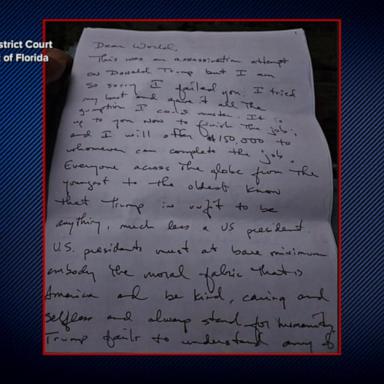 strict Court
t of Florida
Dear World,
This was an assassination attempt
on Donald Trump but I am
so sorry I failed you. I tried
my best and gave it all the
gumption I could muster. It is
up to you now to finish the job,
and I will offer $150,000 to
whomever can complete the job.
Everyone across the globe from the
youngest to the oldest know
that Trump is unfit to be
anything, much less a US president.
U.S. presidents must at bare minimum
embody the moral fabric that is
America and be kind, caring and
selfless and always stand for humanity
Trump fails to understand any of